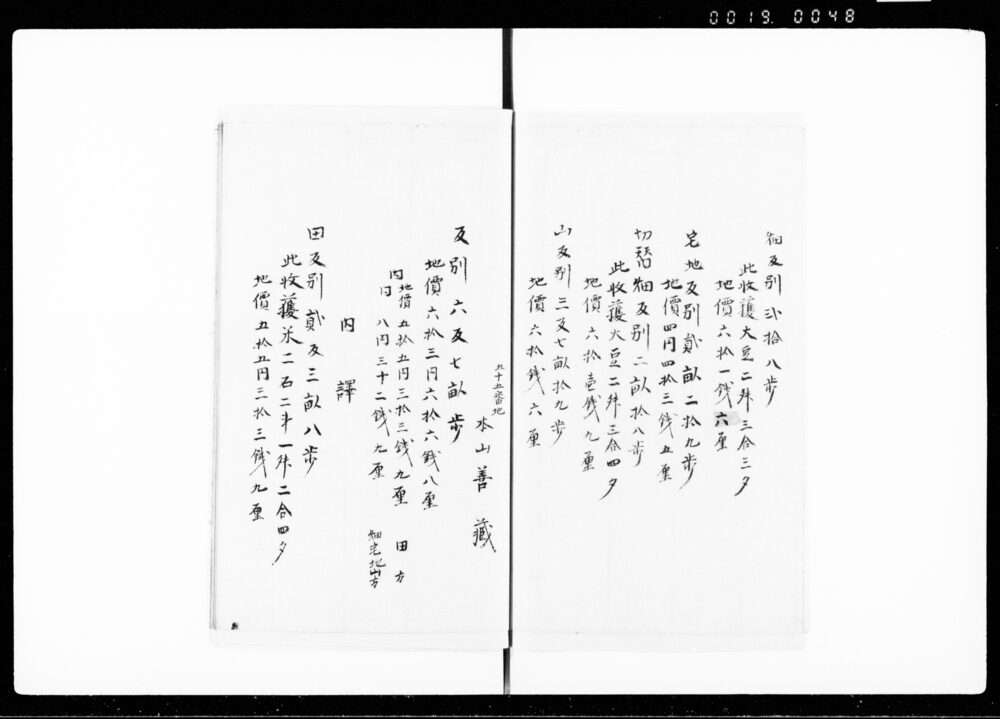 0019. 0048
畑反別弐拾八歩
此收獲大豆二舛三合三夕
地價六拾一銭六厘
宅地反別貳畝二拾九歩
地價四円四拾三銭五厘
切替畑反別二畝拾八歩
此收獲大豆二舛三合四夕
地價六拾壹銭九厘
山反別三反七畝拾九歩
地價六拾銭六厘
五十五番地
本山善藏
反別六反七畝歩
地價六拾三円六拾六銭八厘
内地價五拾五円三拾三銭九厘 田方
内円八円三十二銭九厘 畑宅地山方
内譯
田反別貳反三畝八歩
此收獲米二石二斗一舛二合四夕
地價五拾五円三拾三銭九厘